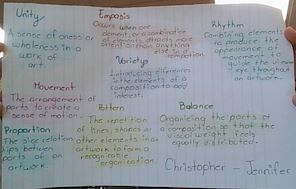 Unity
A sense of oness or
wholeness in a
work of
art.
Empasis
Occurs when one
element, or a combination
of elements, attracks more
attention than anything
else in a
composition
Rhythm
Combining elements
to produce the
appearance of
movement, to
guide the viewers
eye throughout
an artwork.
Variety
Introducing differences
in the elements of a
composition to add
interest.
Movement
The arrangement of
parts to create a
sense of motion.
Pattern
The repetition
of lines, shapes or
other elements in an
artwork to form a
recognizable
organization.
Balance
Organizing the parts of
a composition so that the
visual weight feels
equally distributed.
Proportion
The size relation
ships between
parts of an
artwork.
Christopher - Jennifer